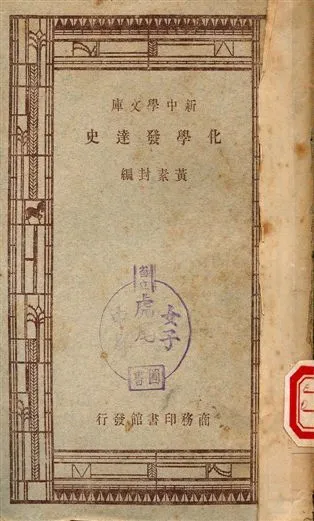 新中學文庫
化學發達史
黃素封編
虎尾
女子
圖書
商務印書館發行